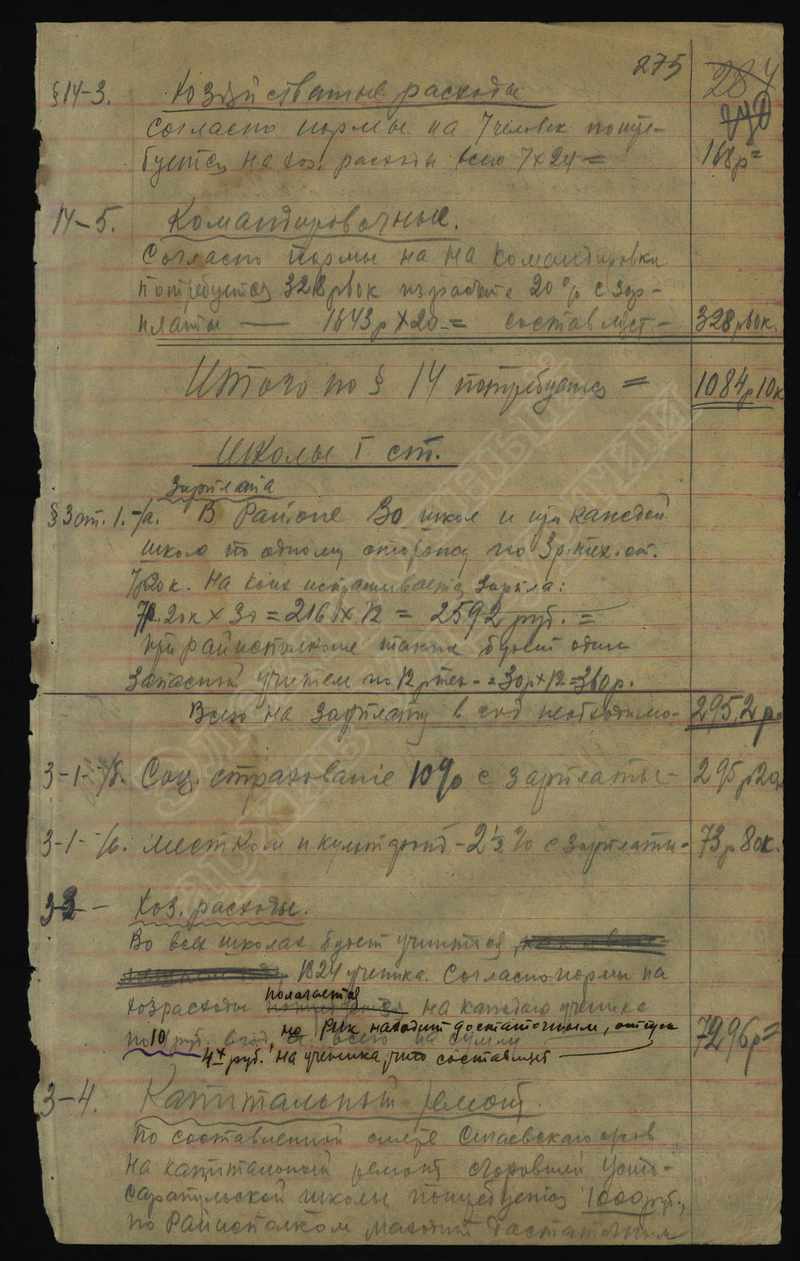 275
284
§ 14-3. Хозяйственные расходы
Согласно нормы на 7 человек потре-
буется на хоз. расходы всего 7 х 24 = 168 р =
14-5. Командировочные.
Согласно нормы на на командировки
потребуется 328 р 60 к 20% с зар-
платы — 1643 р х 20 = составляет - 328 р 60 к.
Итого по § 14 потребуется = 1084 р 10 к
Школы I ст.
Зарплата
§ 3 ст. 1. -/а. В Районе 30 школ и при каждой
школе по одному сторожу по
7 р 20 к. На коих испрашивается зарпла:
7 р. 20 к х 30 = 216 х 12 = 2592 руб. =
при райисполкоме также будет один
запасный учитель по = 30 р х 12 = 360 р.
Всего на зарплату в год необходимо - 2952 р.
3-1-/б. Соц. страхование 10% с зарплаты - 295 р 20
3-1-/в. Местком и культфонд - 2½% с зарплаты - 73 р 80 к.
3-3 - Хоз. расходы.
Во всех школах будет учиться
1824 ученика. Согласно нормы на
хозрасходы полагается на каждого ученика
по 10 руб. в год, но Рик находит достаточным, отпуск
4 р руб. на ученика, что составляет — 7296 р =
3-4. Капитальный ремонт.
По составленной смете
на капитальный ремонт Усть-
Сарапульской школы потребуется 1000 руб.,
но Райисполком находит достаточным